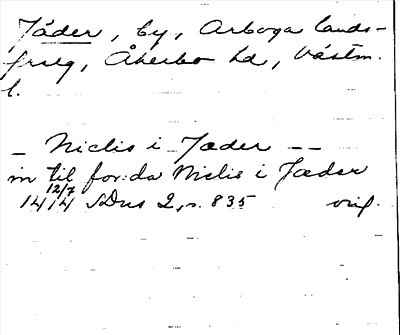 Jäder, by, Arboga lands-
frsg, Åkerbo hd, Västm.
l.
– Niclis i Jæder – –
in til for:da Niclis i Jæder
12/7
1414 SDns 2, s. 835 orig.